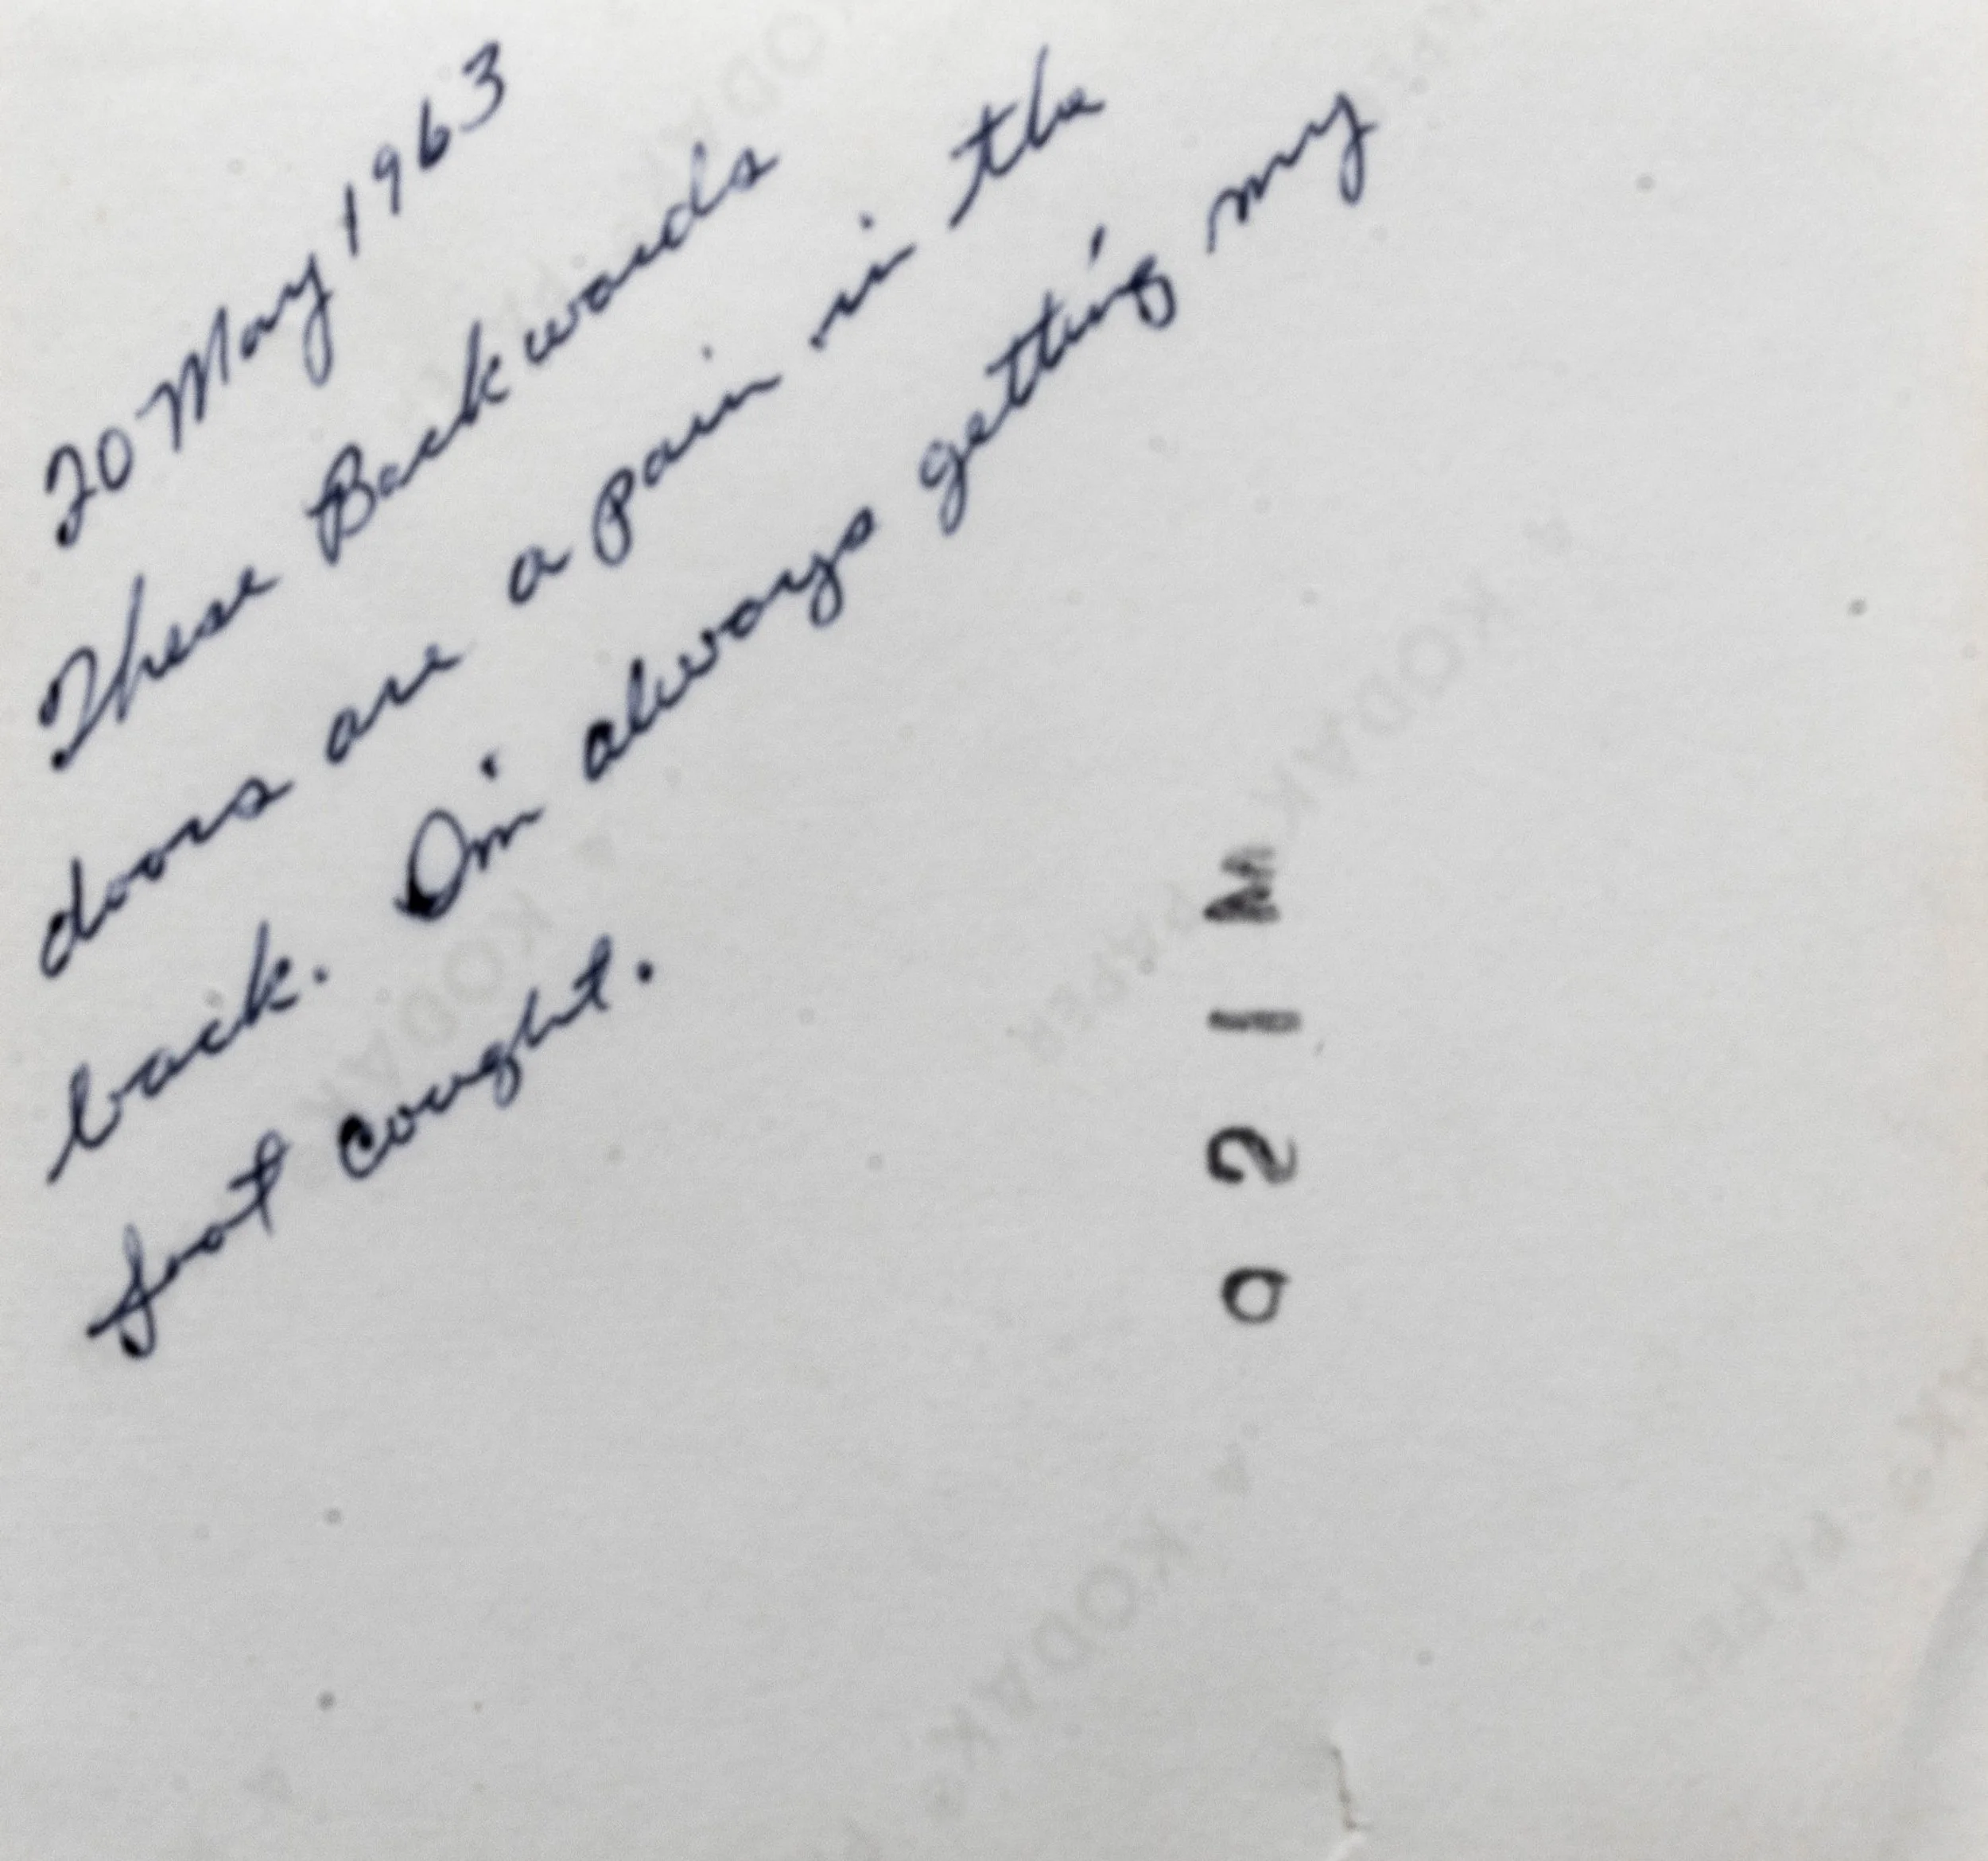 20 May 1963
These Backwards
doors are a pain in the
back. I'm always getting my
foot caught.
M 1 2 a
KODAK
PAPER
KODAK
KODAK
PAPER
KODAK
PAPER